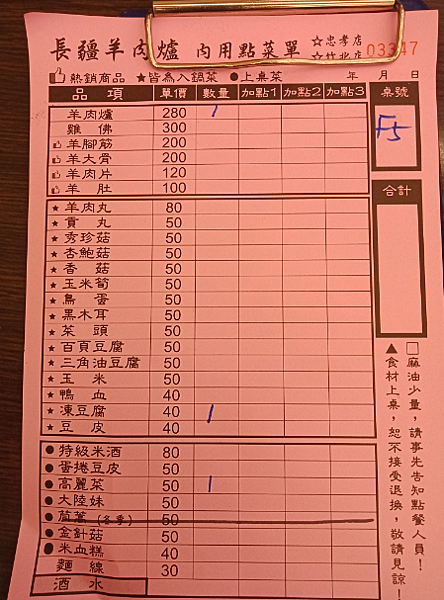 長疆羊肉爐 內用點菜單 ☆忠孝店 ☆竹北店 03347
熱銷商品 ★皆為入鍋菜 ●上桌菜 年 月 日
品項 單價 數量 加點1 加點2 加點3 桌號
羊肉爐 280 1
雞佛 300
羊腳筋 200
羊大骨 200
羊肉片 120
羊肚 100
F5
合計
★羊肉丸 80
★貢丸 50
★秀珍菇 50
★杏鮑菇 50
★香菇 50
★玉米筍 50
★鳥蛋 50
★黑木耳 50
★菜頭 50
★百頁豆腐 50
★三角油豆腐 50
★玉米 50
★鴨血 40
★凍豆腐 40 1
★豆皮 40
●特級米酒 80
●蛋捲豆皮 50
●高麗菜 50 1
●大陸妹 50
●茼蒿(冬季) 50
●金針菇 50
●米血糕 40
麵線 30
酒水
□麻油少量，請事先告知點餐人員！
▲食材上桌，恕不接受退換，敬請見諒！